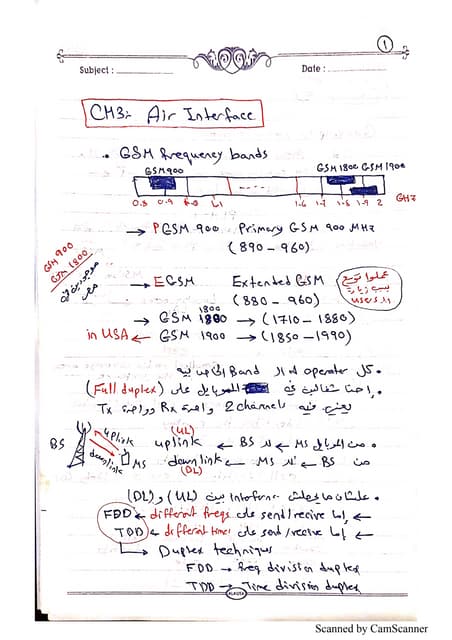 ١
Subject : Date :
CH3:- Air Interface
• GSM frequency bands
GSM900 GSM1800 GSM1900
0.8 0.9 1.1 1.6 1.7 1.8 1.9 2 GHz
→ PGSM 900 Primary GSM 900 MHz
(890-960)
GSM 900
GSM 1800
موجودين في
مصر
→ EGSM Extended GSM
(880-960)
عملوا توسع
بسبب زيادة
الـ users
1800
→ GSM 1800 → (1710-1880)
in USA ← GSM 1900 → (1850-1990)
• كل operator له الـ Band الخاصة بيه
• احنا شغالين في الموبايل على (Full duplex)
يعني فيه 2 channels واحدة Rx وواحدة Tx
(UL)
• من الموبايل MS لـ BS ← uplink
من BS لـ MS ← downlink
(DL)
BS uplink downlink MS
• علشان مايحصلش Interference بين (UL) و (DL)
← إما send/recive على different freqs ← FDD
← إما send/recive على different times ← TDD
Duplex techniques
FDD → freq division duplex
TDD → Time division duplex
Scanned by CamScanner